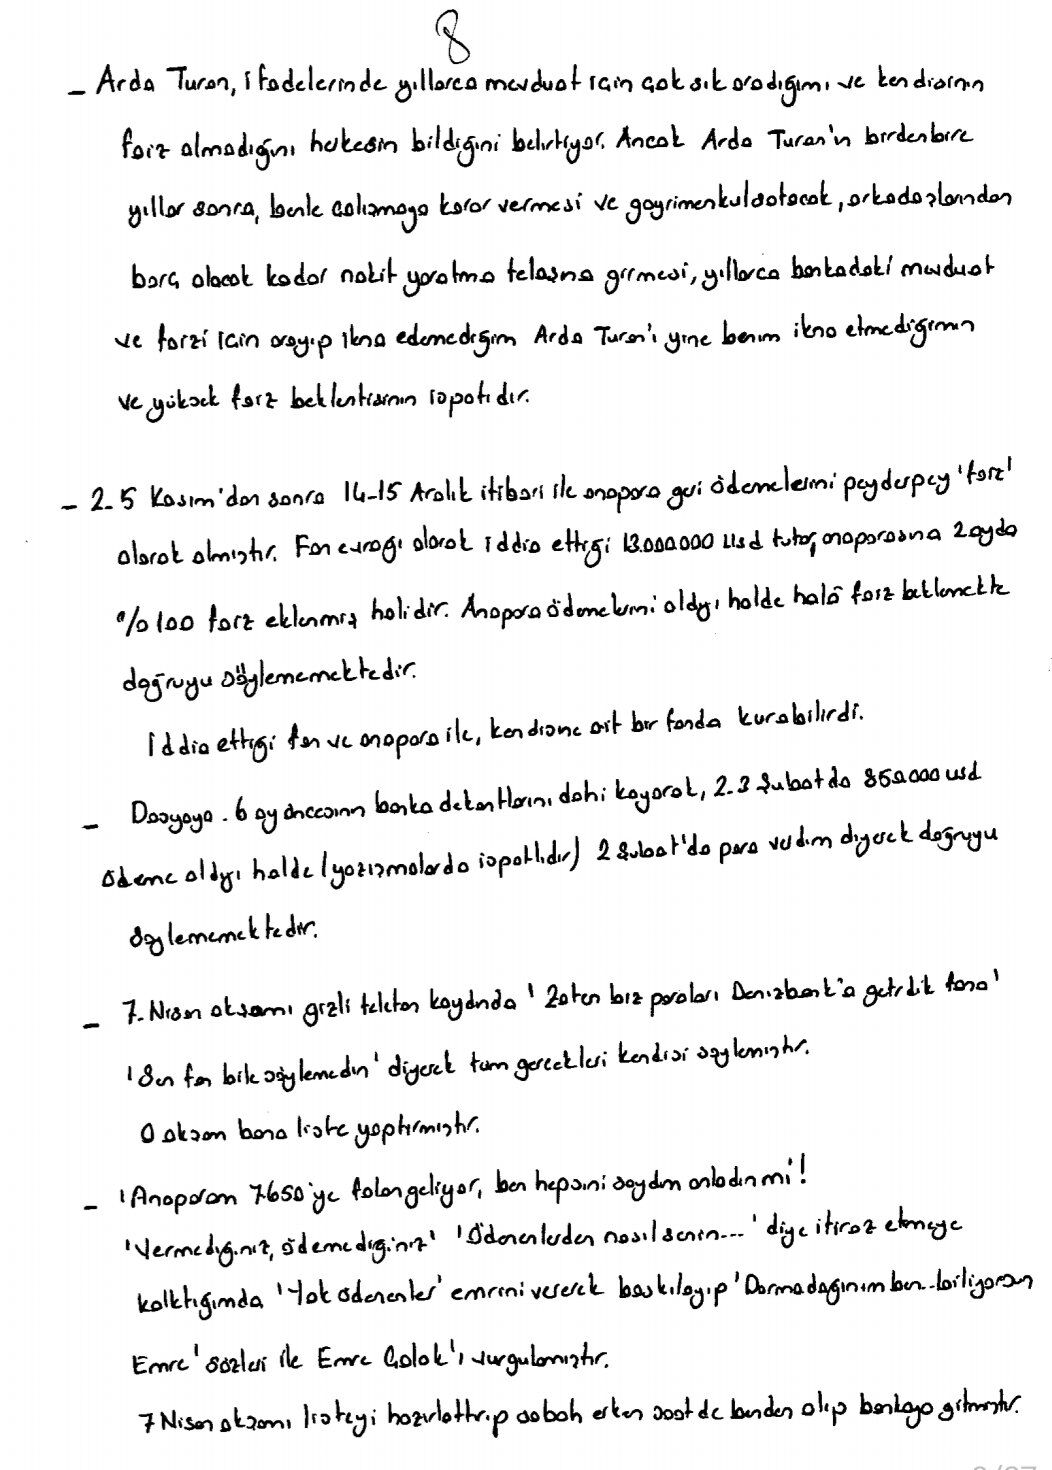 8
- Arda Turan, ifadelerinde yıllarca mevduat için çok sık aradığımı ve kendisinin
faiz almadığını herkesin bildiğini belirtiyor. Ancak Arda Turan'ın birdenbire
yıllar sonra, benle çalışmaya karar vermesi ve gayrimenkul satacak, arkadaşlarından
borç alacak kadar nakit yaratma telaşına girmesi, yıllarca bankadaki mevduat
ve faizi için arayıp ikna edemediğim Arda Turan'ı yine benim ikna etmediğimin
ve yüksek faiz beklentisinin ispatıdır.
- 2-5 Kasım'dan sonra 14-15 Aralık itibari ile anapara geri ödemelerini peyderpey 'faiz'
olarak almıştır. Fon evrağı olarak iddia ettiği 13.000.000 usd tutar, anaparasına 2 ayda
%100 faiz eklenmiş halidir. Anapara ödemelerini aldığı halde halâ faiz beklemekte
doğruyu söylememektedir.
İddia ettiği fon ve anapara ile, kendisine ait bir fonda kurabilirdi.
- Dosyaya . 6 ay öncesinin banka dekontlarını dahi koyarak, 2-3 Şubat da 850.000 usd
ödeme aldığı halde (yazışmalarda ispatlıdır) 2 Şubat'da para verdim diyerek doğruyu
söylememektedir.
- 7-Nisan akşamı gizli telefon kaydında ' Zaten biz paraları Denizbank'a getirdik sana'
'Sen fon bile söylemedin' diyerek tüm gerçekleri kendisi söylemiştir.
O akşam bana liste yaptırmıştır.
- 'Anaparam 7650'ye falan geliyor, ben hepsini saydım anladın mı'!
'Vermediğiniz, ödemediğiniz' 'Ödenenlerden nasıl senin...' diye itiraz etmeye
kalktığımda 'Yok ödenenler' emrini vererek baskılayıp 'Darmadağınım ben..biliyorsun
Emre' sözleri ile Emre Çolak'ı vurgulamıştır.
7 Nisan akşamı listeyi hazırlattırıp sabah erken saatde benden alıp bankaya gitmiştir.